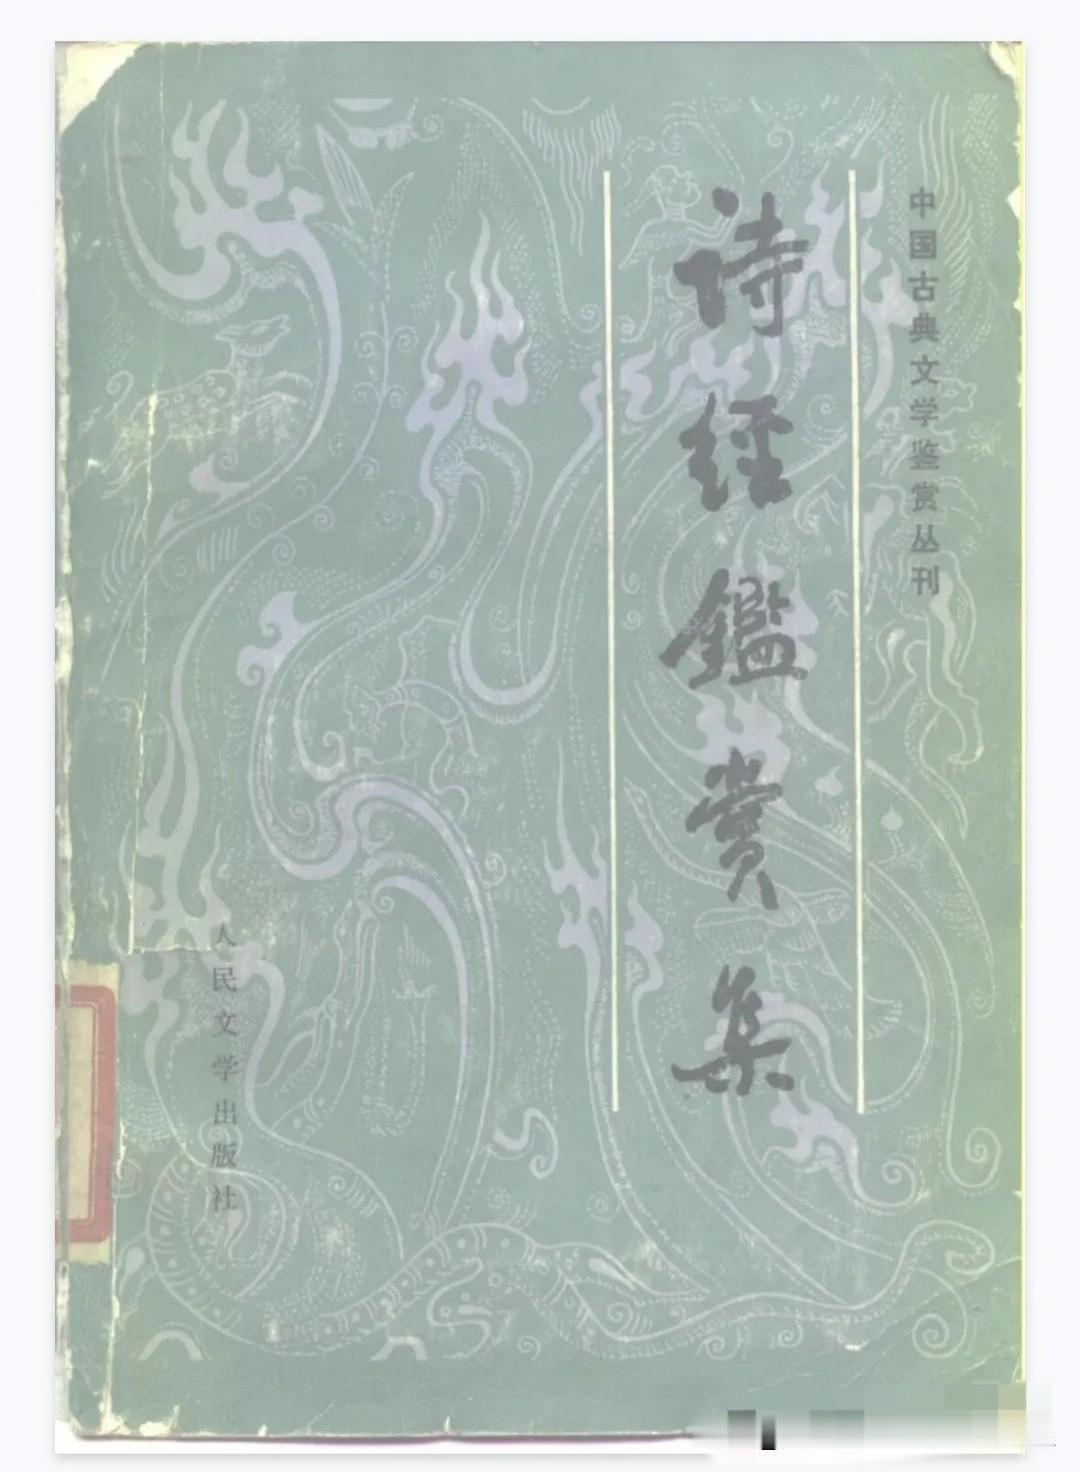 中国古典文学鉴赏丛刊
诗经鑑赏集
人民文学出版社